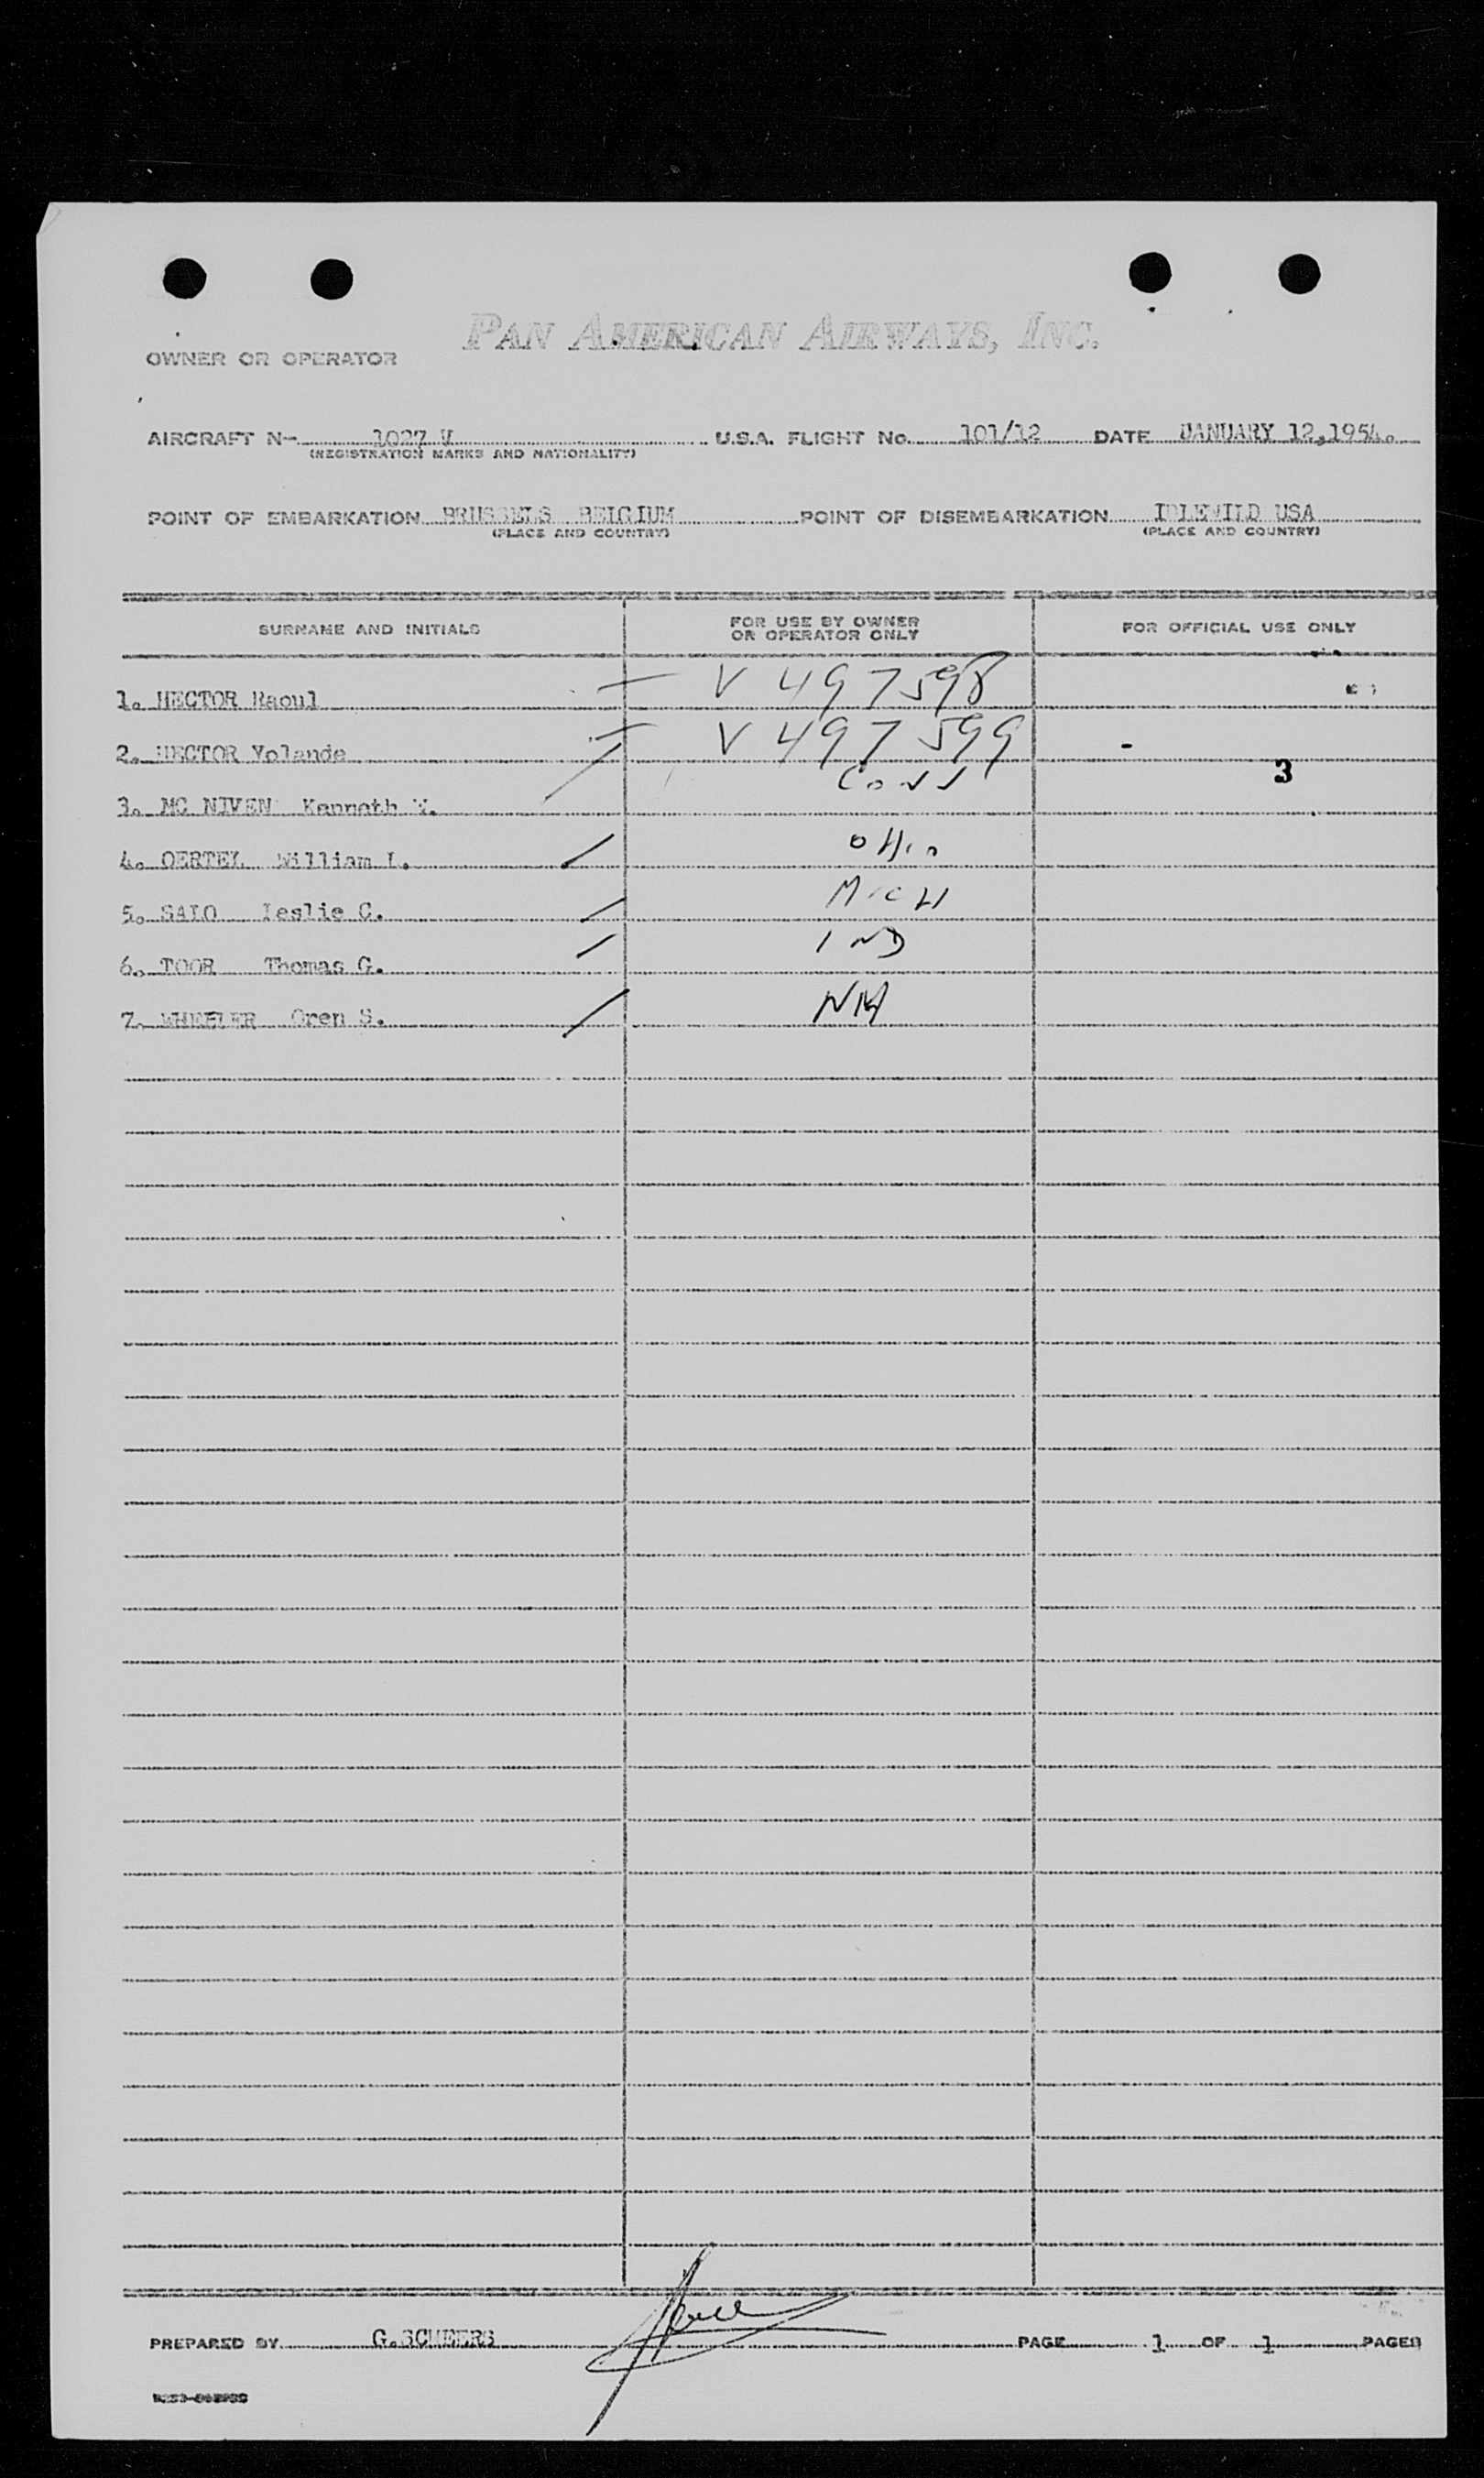 PAN AMERICAN AIRWAYS, INC.
OWNER OR OPERATOR
AIRCRAFT N- 1027 V U.S.A. FLIGHT No. 101/12 DATE JANUARY 12,1954.
(REGISTRATION MARKS AND NATIONALITY)
POINT OF EMBARKATION BRUSSELS BELGIUM POINT OF DISEMBARKATION IDLEWILD USA
(PLACE AND COUNTRY) (PLACE AND COUNTRY)
SURNAME AND INITIALS FOR USE BY OWNER OR OPERATOR ONLY FOR OFFICIAL USE ONLY
1. HECTOR Raoul V 497598
2. HECTOR Yolande V 497599
3
3. MC NIVEN Kenneth W. CONN
4. OERTEL William L. OHIO
5. SALO Leslie C. MICH
6. TOOR Thomas G. IND
7. WHEELER Oren S. NH
PREPARED BY G.SCHEERS PAGE 1 OF 1 PAGES